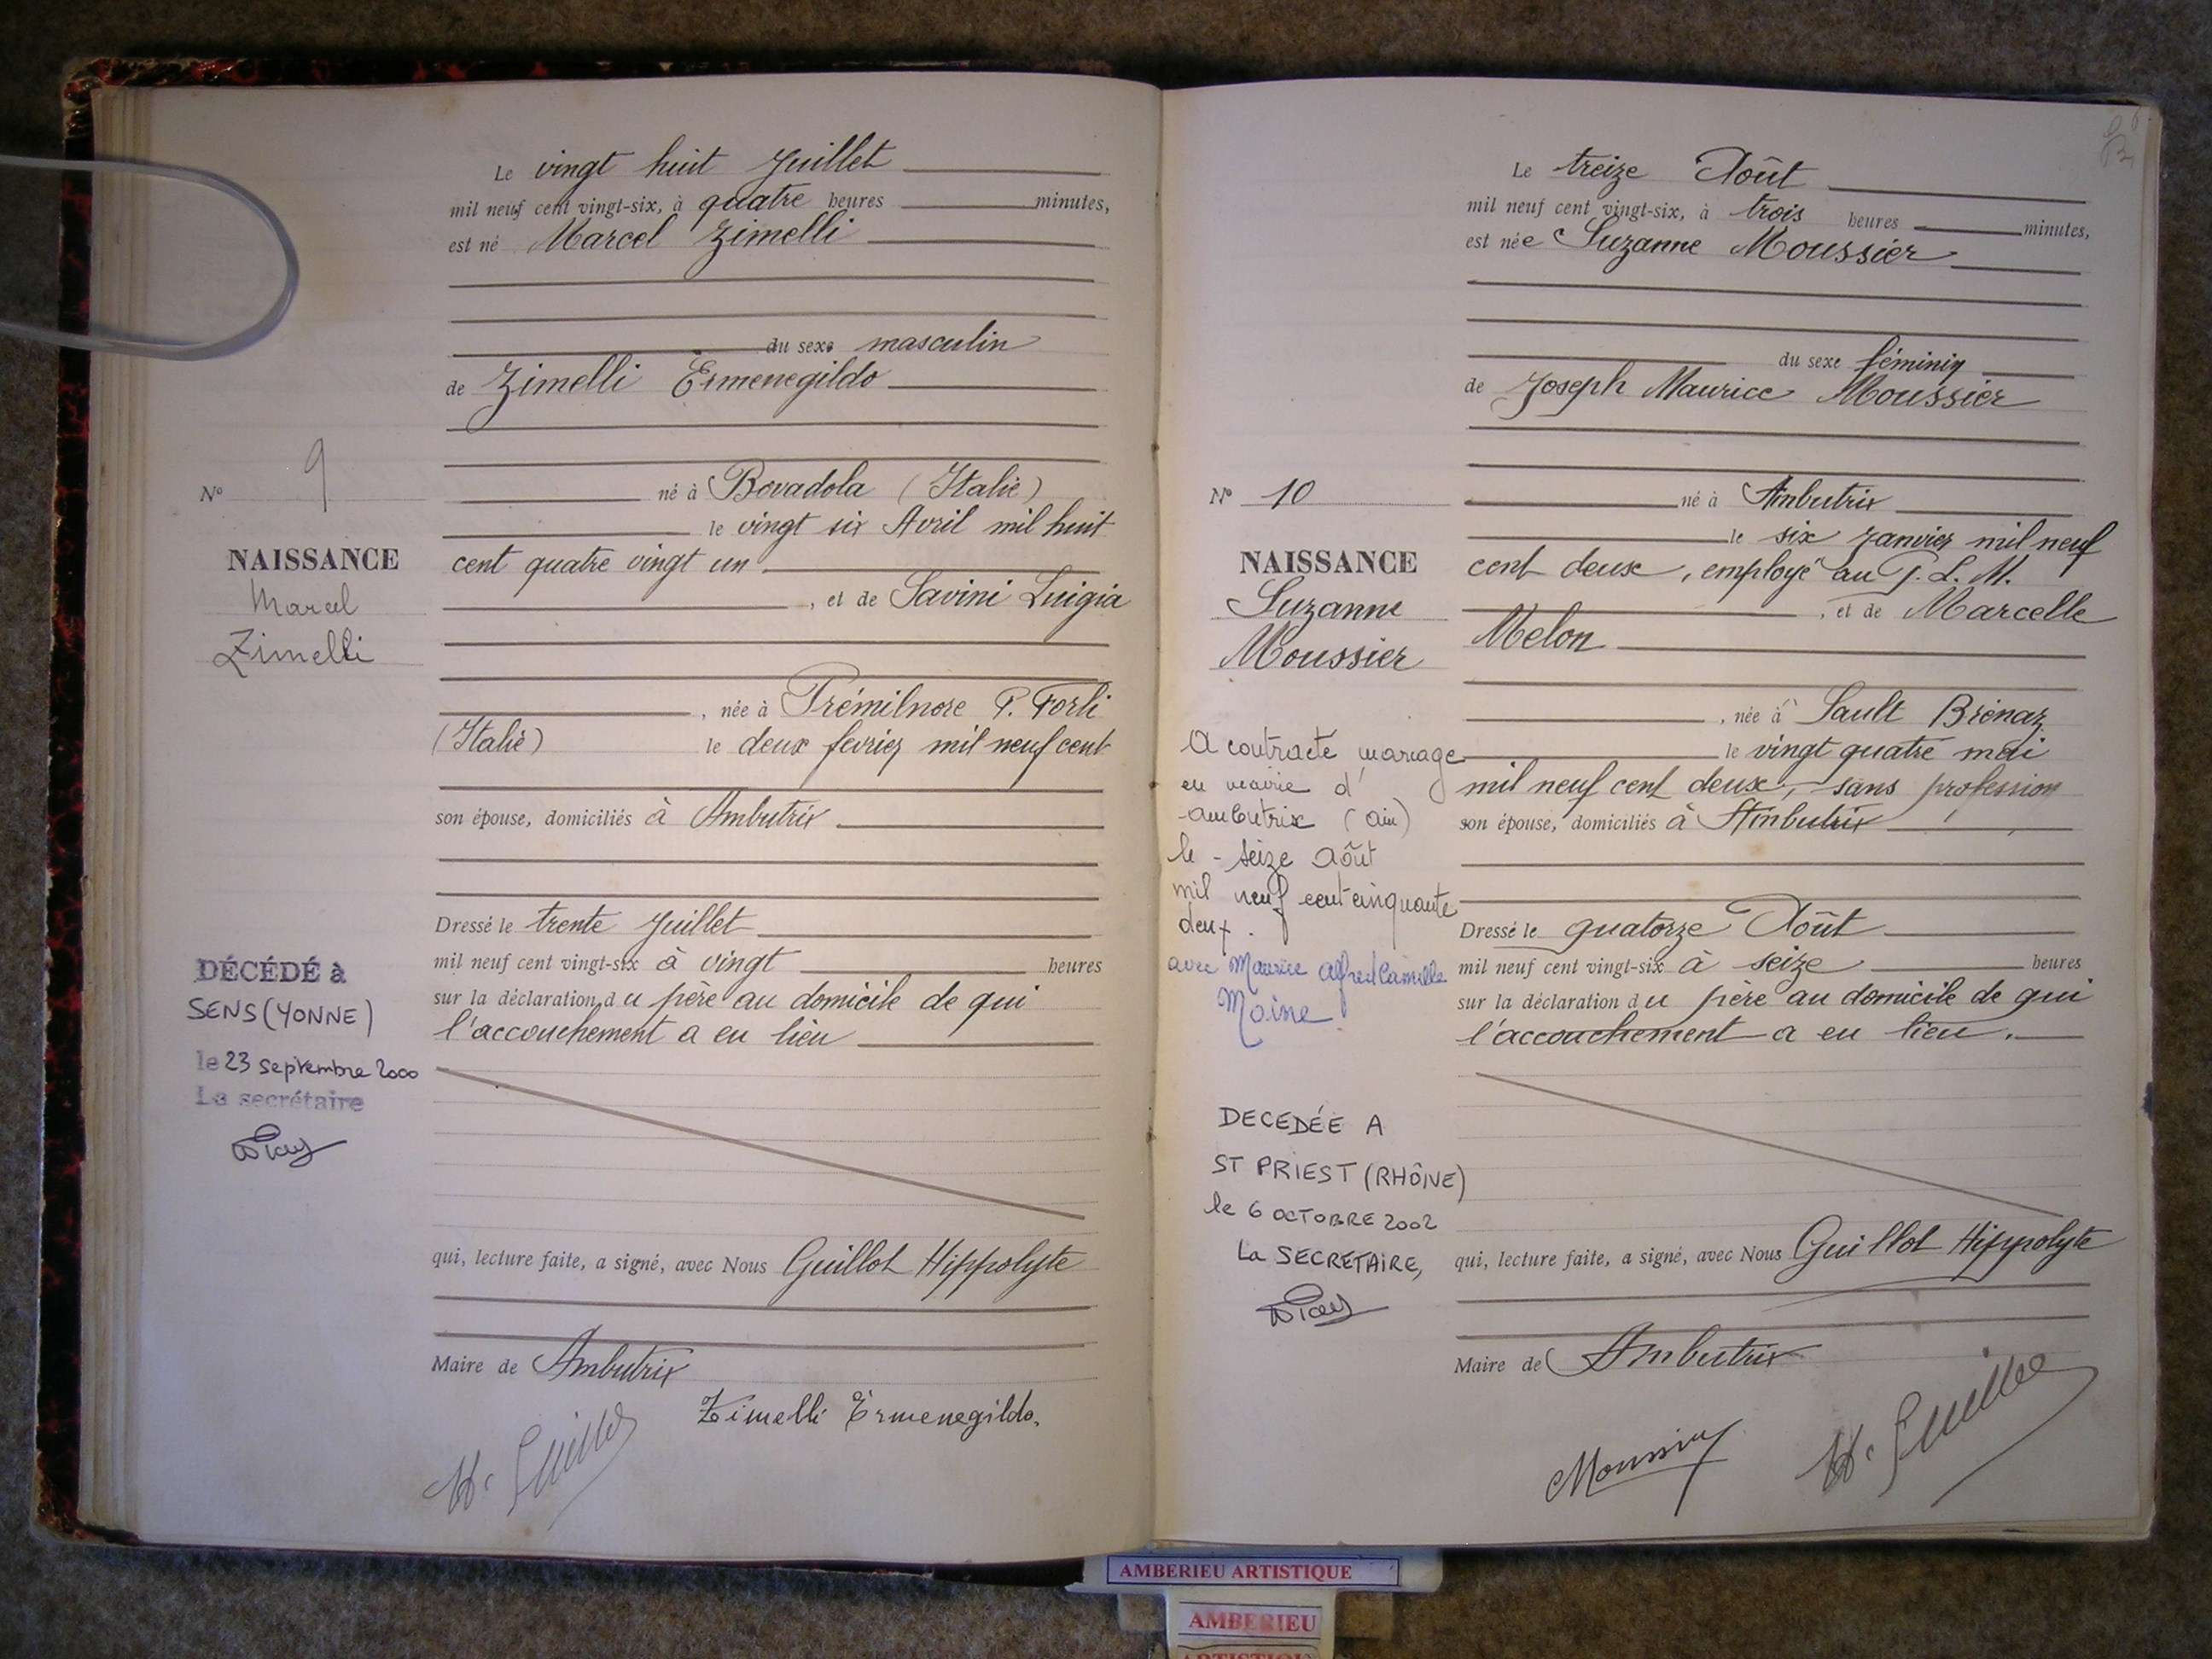 Le vingt huit Juillet
mil neuf cent vingt-six, à quatre heures minutes,
est né Marcel Zimelli
du sexe masculin
de Zimelli Ermenegildo
né à Bovadola (Italie)
le vingt six Avril mil huit
cent quatre vingt un
, et de Savini Luigia
, née à Prémilnore P. Forli
(Italie) le deux fevrier mil neuf cent
son épouse, domiciliés à Ambutrix
Dressé le trente Juillet
mil neuf cent vingt-six à vingt heures
sur la déclaration du père au domicile de qui
l'accouchement a eu lieu
qui, lecture faite, a signé, avec Nous Guillot Hippolyte
Maire de Ambutrix
Zimelli Ermenegildo.
H. Guillot
N° 9
NAISSANCE
Marcel
Zimelli
DÉCÉDÉ à
SENS (YONNE)
le 23 septembre 2000
La secrétaire
Le treize Août
mil neuf cent vingt-six, à trois heures minutes,
est née Suzanne Moussier
du sexe féminin
de Joseph Maurice Moussier
né à Ambutrix
le six Janvier mil neuf
cent deux, employé au P. L. M.
, et de Marcelle
Melon
, née à Sault Brénaz
le vingt quatre mai
mil neuf cent deux, sans profession
son épouse, domiciliés à Ambutrix
Dressé le quatorze Août
mil neuf cent vingt-six à seize heures
sur la déclaration du père au domicile de qui
l'accouchement a eu lieu.
qui, lecture faite, a signé, avec Nous Guillot Hippolyte
Maire de Ambutrix
Moussier
H. Guillot
N° 10
NAISSANCE
Suzanne
Moussier
A contracté mariage
en mairie d'
ambutrix (ain)
le - seize août
mil neuf cent cinquante
deux.
avec Maurice Alfred Camille
Moine
DECEDÉE A
ST PRIEST (RHÔNE)
le 6 OCTOBRE 2002
La SECRETAIRE,
AMBERIEU ARTISTIQUE
AMBERIEU
ARTISTIQUE